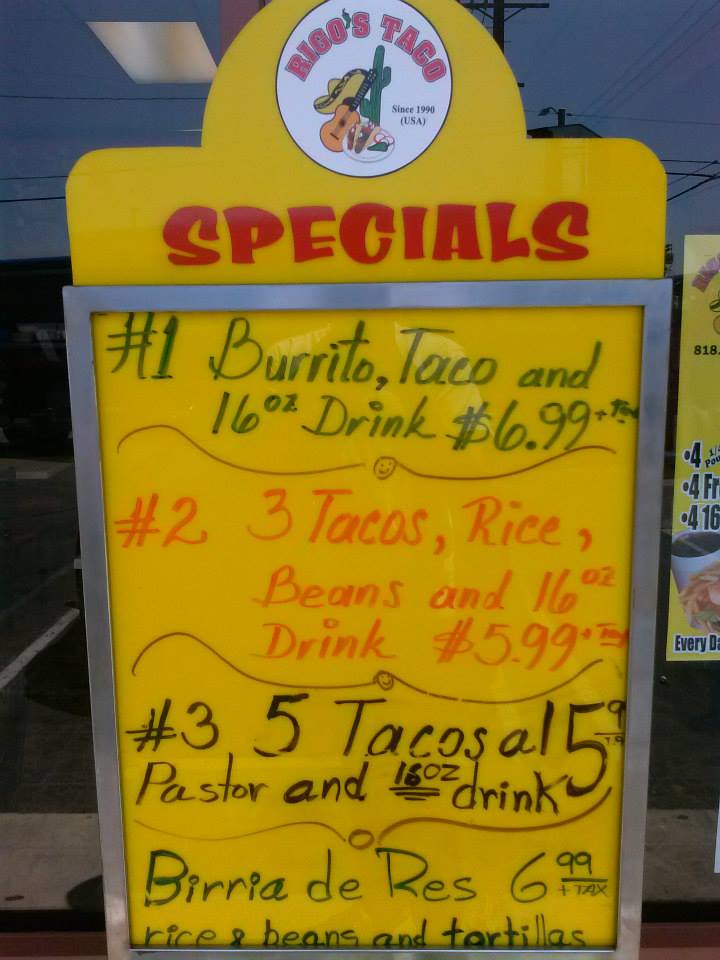 RIGO'S TACO
Since 1990
(USA)
SPECIALS
#1 Burrito, Taco and
16 oz Drink $6.99 + Tax
#2 3 Tacos, Rice,
Beans and 16 oz
Drink $5.99 + Tax
#3 5 Tacos al 5 9
Pastor and 16 oz drink
Birria de Res 6 99 + TAX
rice & beans and tortillas
818.
•4
•4 Fr
•4 16
Every Da